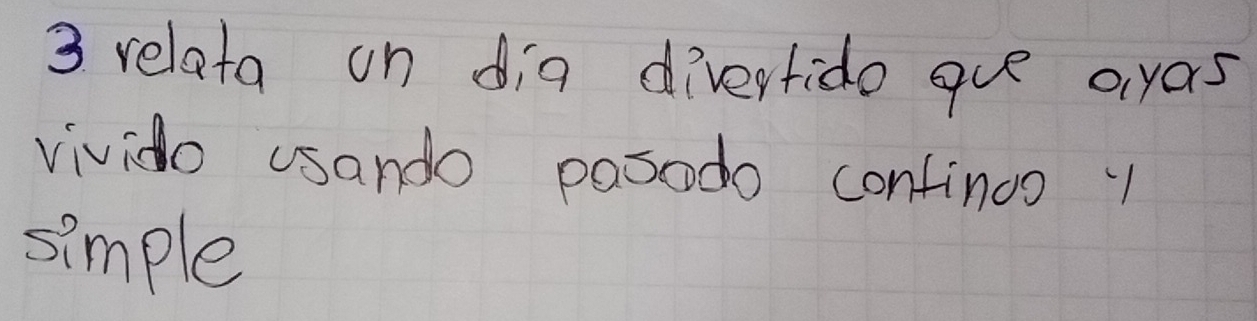 3. relata un día divertido que ayas
vivido usando pasado continuo y
simple